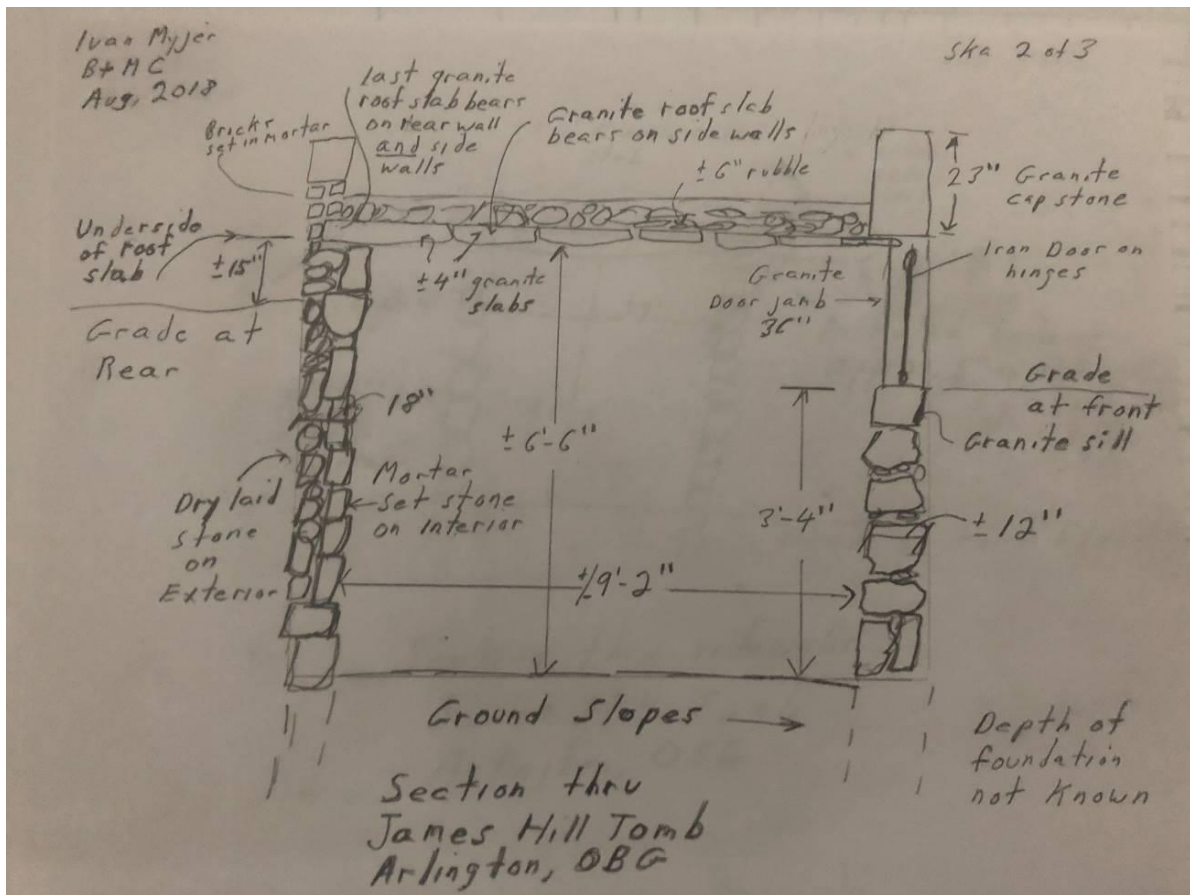 Ivan Myjer
B+MC
Aug, 2018
Ska 2 of 3
Bricks
set in mortar
last granite
roof slab bears
on rear wall
and side
walls
Granite roof slab
bears on side walls
± 6" rubble
23" Granite
cap stone
Underside
of roof
slab
±15"
±4" granite
slabs
Granite
Door jamb
36"
Iron Door on
hinges
Grade at
Rear
Grade
at front
Granite sill
18"
± 6'-6"
Dry laid
stone
on
Exterior
Mortar
set stone
on interior
3'-4"
± 12"
+/- 9'-2"
Ground Slopes
Depth of
foundation
not Known
Section thru
James Hill Tomb
Arlington, OBG